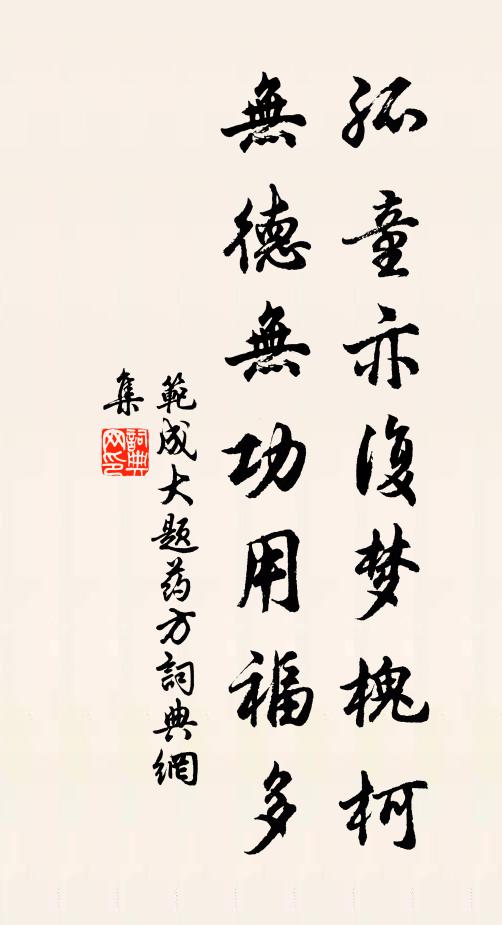 孤童亦復梦槐柯
無德無功用福多
範成大题药方詞典網
集
詞典网印